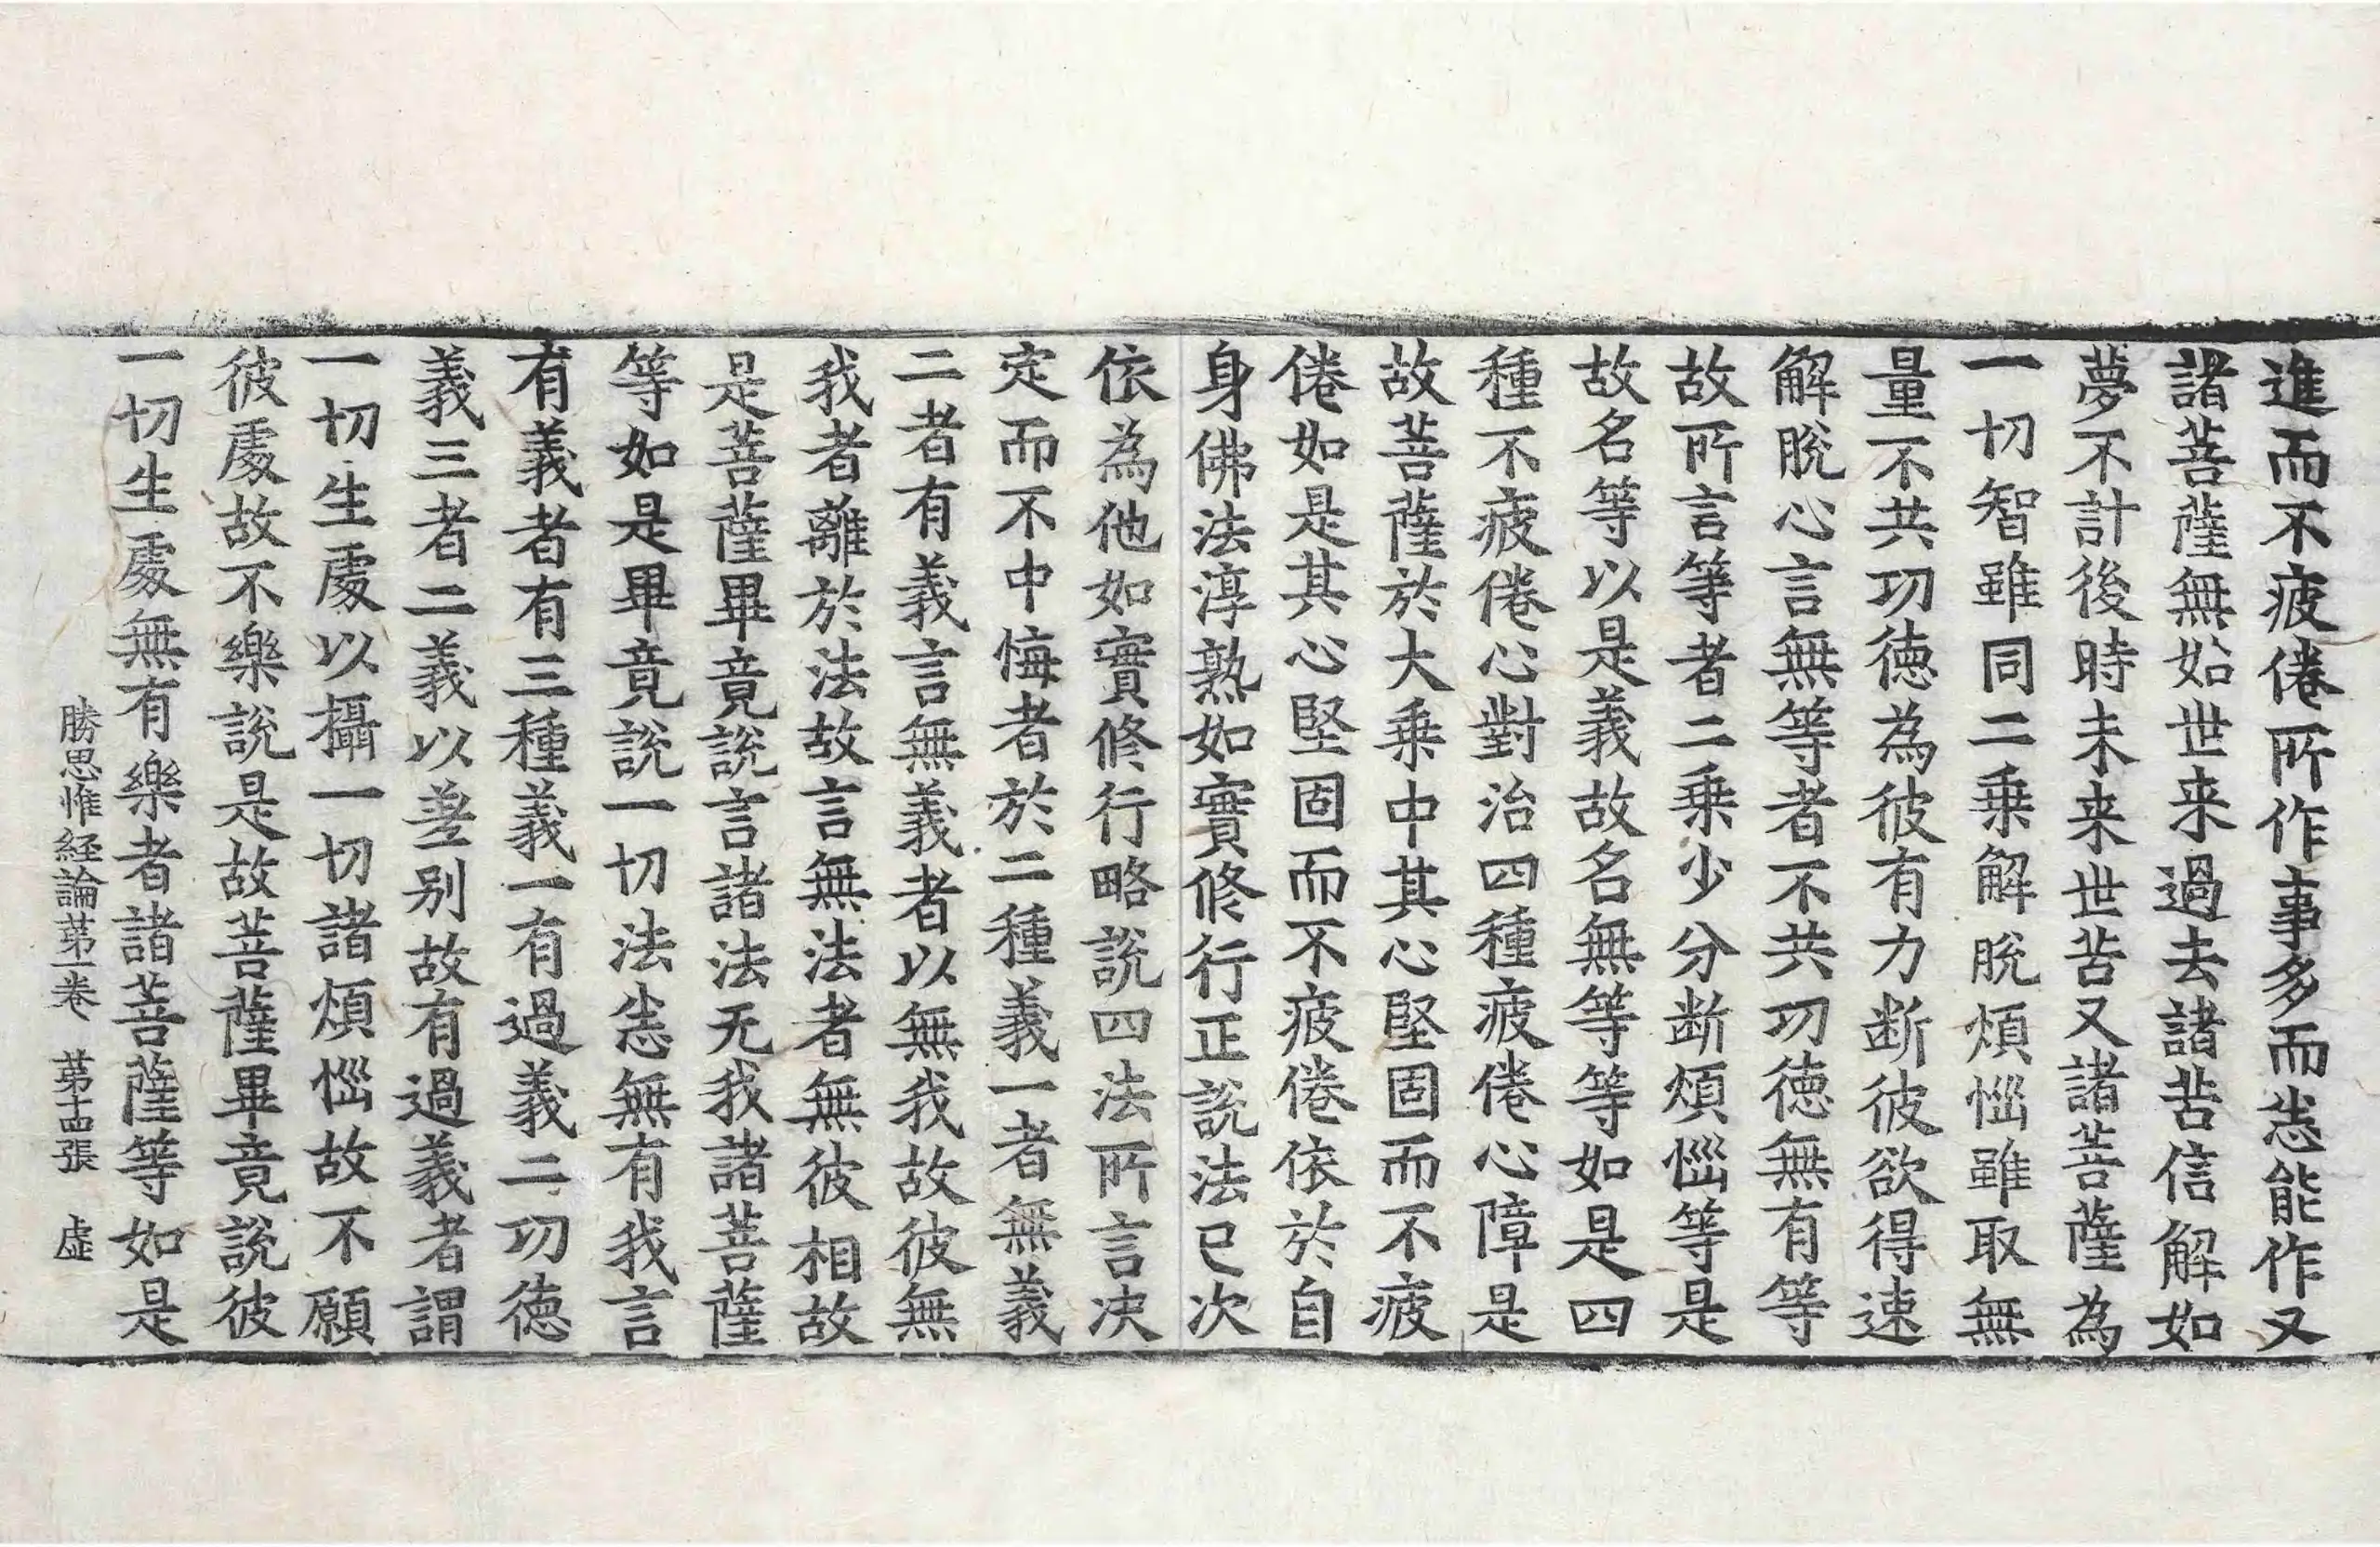 進而不疲倦所作事多而悉能作又
諸菩薩無始世来過去諸苦信解如
夢不計後時未来世苦又諸菩薩為
一切智雖同二乗解脫煩惱雖取無
量不共功徳為彼有力断彼欲得速
解脫心言無等者不共功徳無有等
故所言等者二乗少分断煩惱等是
故名等以是義故名無等等如是四
種不疲倦心對治四種疲倦心障是
故菩薩於大乗中其心堅固而不疲
倦如是其心堅固而不疲倦依於自
身佛法淳熟如實修行正說法已次
依為他如實修行略說四法所言决
定而不中悔者於二種義一者無義
二者有義言無義者以無我故彼無
我者離於法故言無法者無彼相故
是菩薩畢竟說言諸法无我諸菩薩
等如是畢竟說一切法悉無有我言
有義者有三種義一有過義二功徳
義三者二義以差别故有過義者謂
一切生處以攝一切諸煩惱故不願
彼處故不樂說是故菩薩畢竟說彼
一切生處無有樂者諸菩薩等如是
勝思惟経論苐一卷　苐十四張　虛